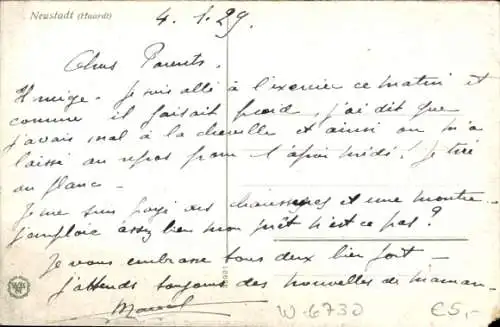 Neustadt (Haardt)
4.1.29
Chers Parents.
Il neige. Je suis allé à l'exercice ce matin et
comme il faisait froid, j'ai dit que
j'avais mal à la cheville et ainsi on m'a
laissé au repos pour l'après midi! Je tire
au flanc -
Je me suis payé des chaussures et une montre
j'emploie assez bien mon prêt n'est ce pas?
Je vous embrasse tous deux bien fort -
j'attends toujours des nouvelles de maman -
Marcel
W-6730 €5,-